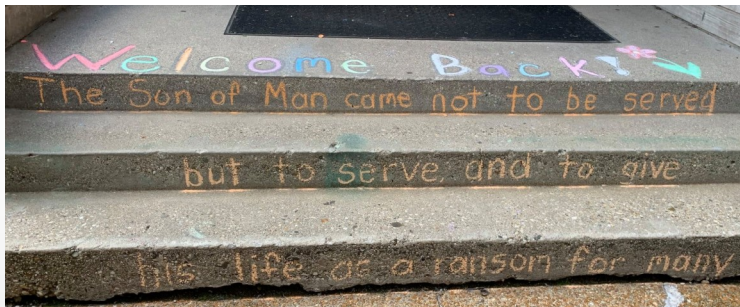 Welcome Back!
The Son of Man came not to be served
but to serve and to give
his life as a ransom for many